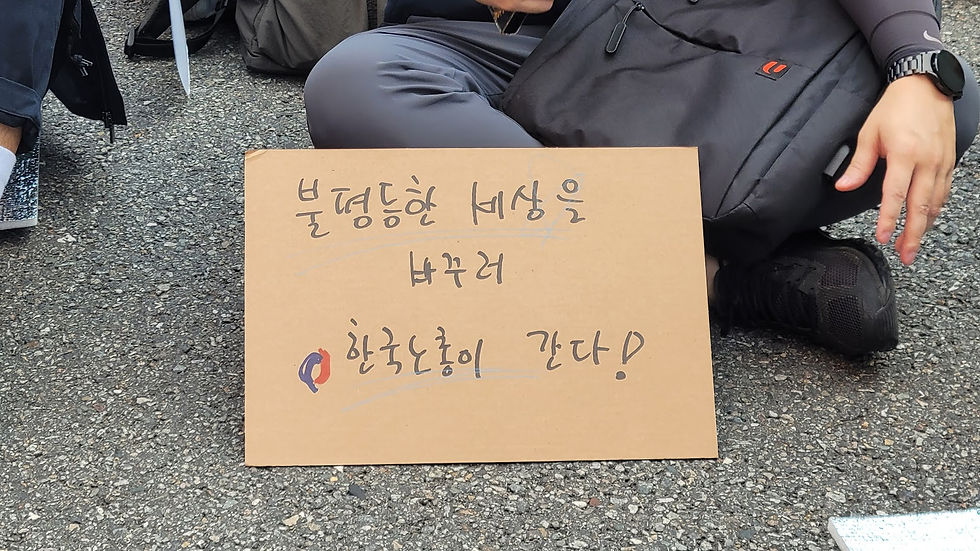 불평등한 세상을
바꾸러
한국노총이 간다!